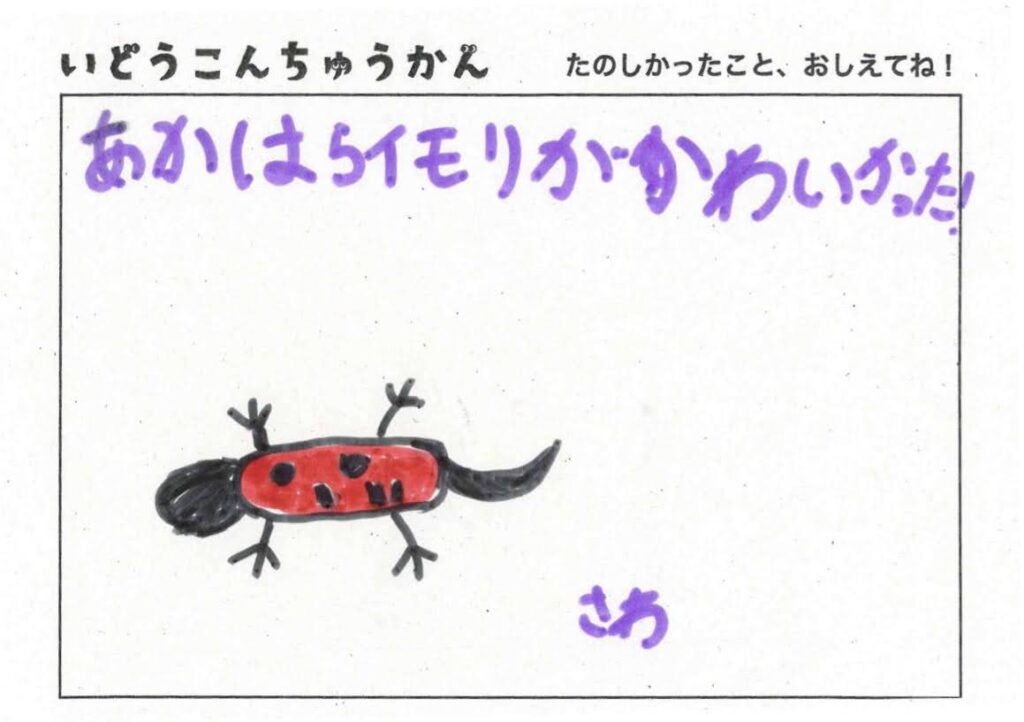 いどうこんちゅうかん
たのしかったこと、おしえてね!
あかはらイモリがかわいかった!
さわ